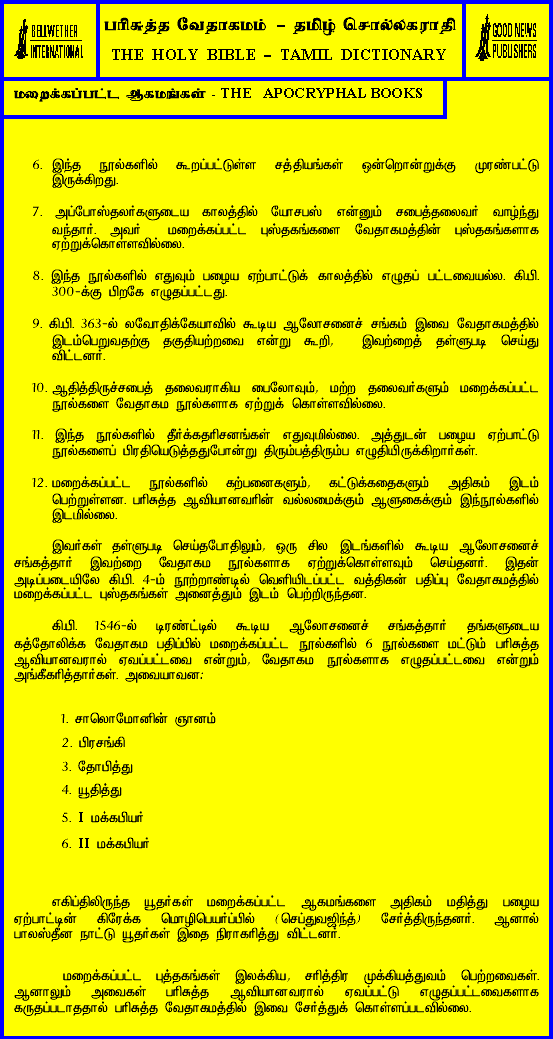 BELLWETHER
INTERNATIONAL
பரிசுத்த வேதாகமம் – தமிழ் சொல்லகராதி
THE HOLY BIBLE – TAMIL DICTIONARY
GOOD NEWS
PUBLISHERS
மறைக்கப்பட்ட ஆகமங்கள் - THE APOCRYPHAL BOOKS
6. இந்த நூல்களில் கூறப்பட்டுள்ள சத்தியங்கள் ஒன்றொன்றுக்கு முரண்பட்டு
இருக்கிறது.
7. அப்போஸ்தலர்களுடைய காலத்தில் யோசபஸ் என்னும் சபைத்தலைவர் வாழ்ந்து
வந்தார். அவர் மறைக்கப்பட்ட புஸ்தகங்களை வேதாகமத்தின் புஸ்தகங்களாக
ஏற்றுக்கொள்ளவில்லை.
8. இந்த நூல்களில் எதுவும் பழைய ஏற்பாட்டுக் காலத்தில் எழுதப் பட்டவையல்ல. கி.பி.
300-க்கு பிறகே எழுதப்பட்டது.
9. கி.பி. 363-ல் லவோதிக்கேயாவில் கூடிய ஆலோசனைச் சங்கம் இவை வேதாகமத்தில்
இடம்பெறுவதற்கு தகுதியற்றவை என்று கூறி, இவற்றைத் தள்ளுபடி செய்து
விட்டனர்.
10. ஆதித்திருச்சபைத் தலைவராகிய பைலோவும், மற்ற தலைவர்களும் மறைக்கப்பட்ட
நூல்களை வேதாகம நூல்களாக ஏற்றுக் கொள்ளவில்லை.
11. இந்த நூல்களில் தீர்க்கதரிசனங்கள் எதுவுமில்லை. அத்துடன் பழைய ஏற்பாட்டு
நூல்களைப் பிரதியெடுத்ததுபோன்று திரும்பத்திரும்ப எழுதியிருக்கிறார்கள்.
12. மறைக்கப்பட்ட நூல்களில் கற்பனைகளும், கட்டுக்கதைகளும் அதிகம் இடம்
பெற்றுள்ளன. பரிசுத்த ஆவியானவரின் வல்லமைக்கும் ஆளுகைக்கும் இந்நூல்களில்
இடமில்லை.
இவர்கள் தள்ளுபடி செய்தபோதிலும், ஒரு சில இடங்களில் கூடிய ஆலோசனைச்
சங்கத்தார் இவற்றை வேதாகம நூல்களாக ஏற்றுக்கொள்ளவும் செய்தனர். இதன்
அடிப்படையிலே கி.பி. 4-ம் நூற்றாண்டில் வெளியிடப்பட்ட வத்திகன் பதிப்பு வேதாகமத்தில்
மறைக்கப்பட்ட புஸ்தகங்கள் அனைத்தும் இடம் பெற்றிருந்தன.
கி.பி. 1546-ல் டிரண்ட்டில் கூடிய ஆலோசனைச் சங்கத்தார் தங்களுடைய
கத்தோலிக்க வேதாகம பதிப்பில் மறைக்கப்பட்ட நூல்களில் 6 நூல்களை மட்டும் பரிசுத்த
ஆவியானவரால் ஏவப்பட்டவை என்றும், வேதாகம நூல்களாக எழுதப்பட்டவை என்றும்
அங்கீகரித்தார்கள். அவையாவன:
1. சாலொமோனின் ஞானம்
2. பிரசங்கி
3. தோபித்து
4. யூதித்து
5. I மக்கபியர்
6. II மக்கபியர்
எகிப்திலிருந்த யூதர்கள் மறைக்கப்பட்ட ஆகமங்களை அதிகம் மதித்து பழைய
ஏற்பாட்டின் கிரேக்க மொழிபெயர்ப்பில் (செப்துவஜிந்த்) சேர்த்திருந்தனர். ஆனால்
பாலஸ்தீன நாட்டு யூதர்கள் இதை நிராகரித்து விட்டனர்.
மறைக்கப்பட்ட புத்தகங்கள் இலக்கிய, சரித்திர முக்கியத்துவம் பெற்றவைகள்.
ஆனாலும் அவைகள் பரிசுத்த ஆவியானவரால் ஏவப்பட்டு எழுதப்பட்டவைகளாக
கருதப்படாததால் பரிசுத்த வேதாகமத்தில் இவை சேர்த்துக் கொள்ளப்படவில்லை.